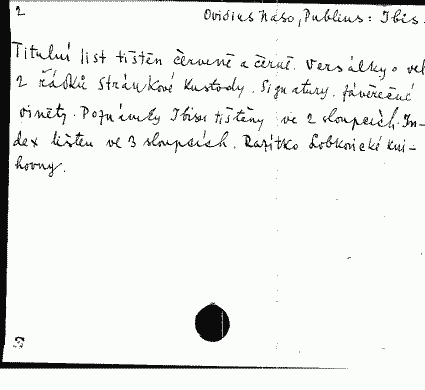 2 Ovidius Naso, Publius: Ibis.
Titulní list tištěn červeně a černě. Versálky o vel.
2 řádků Stránkové Kustody. Signatury. Závěrečné
viněty. Poznámky Ibisu tištěny ve 2 sloupcích. In-
dex tištěn ve 3 sloupcích. Razítko Lobkovické kni-
hovny.